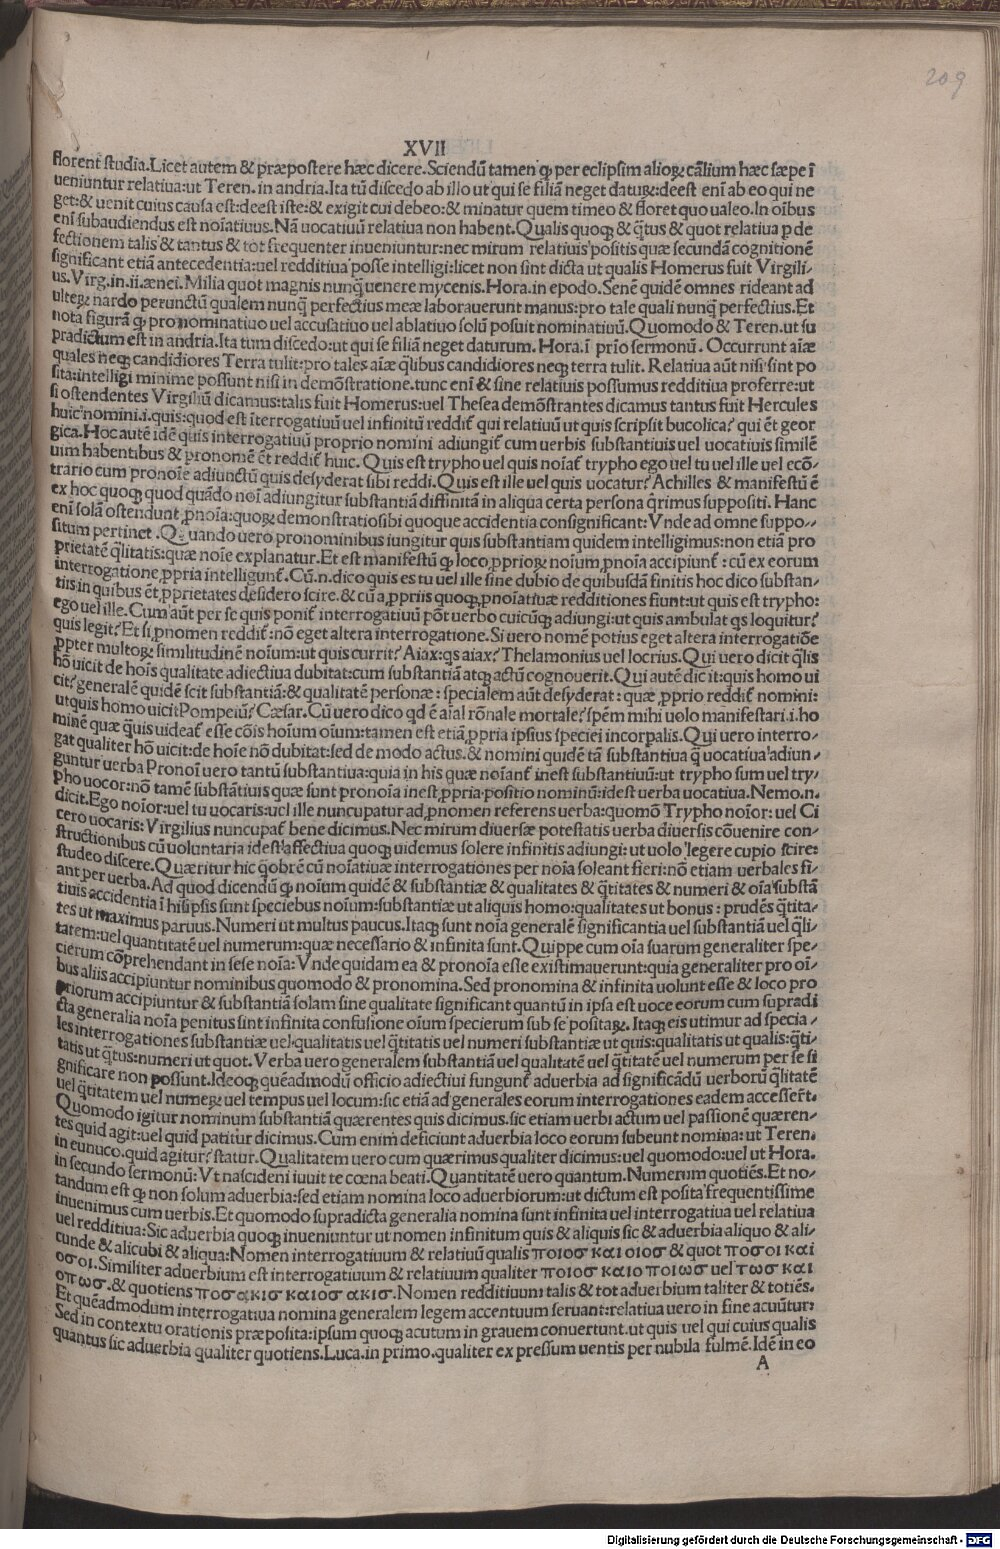 209
XVII
florent studia.Licet autem & præpostere hæc dicere.Sciendū tamen ꝙ per eclipsim alioꝝ cālium hæc sæpe ī
ueniuntur relatiua:ut Teren.in andria.Ita tū discedo ab illo ut qui se filiā neget datuꝝ:deest enī ab eo qui ne
get:& uenit cuius causa est:deest iste:& exigit cui debeo:& minatur quem timeo & floret quo ualeo.In oībus
enī subaudiendus est noīatiuus.Nā uocatiuū relatiua non habent.Qualis quoqꝫ & q̄tus & quot relatiua p de
fectionem talis & tantus & tot frequenter inueniuntur:nec mirum relatiuis positis quæ secundā cognitionē
significant etiā antecedentia:uel redditiua posse intelligi:licet non sint dicta ut qualis Homerus fuit Virgili/
us.Virg.in.ii.ænei.Milia quot magnis nunq̄ uenere mycenis.Hora.in epodo.Senē quidē omnes rideant ad
ulteꝝ nardo perunctū qualem nunq̄ perfectius meæ laborauerunt manus:pro tale quali nunq̄ perfectius.Et
nota figurā ꝙ pro nominatiuo uel accusatiuo uel ablatiuo solū posuit nominatiuū.Quomodo & Teren.ut su
pradictum est in andria.Ita tum discedo:ut qui se filiā neget daturum. Hora.ī prīo sermonū. Occurrunt aīæ
quales neqꝫ candidiores Terra tulit:pro tales aīæ q̄libus candidiores neqꝫ terra tulit. Relatiua aūt nisi sint po
sita:intelligi minime possunt nisi in demōstratione.tunc enī & sine relatiuis possumus redditiua proferre:ut
si ostendentes Virgiliū dicamus:talis fuit Homerus:uel Thesea demōstrantes dicamus tantus fuit Hercules
huic nomini.i.quis:quod est īterrogatiuū uel infinitū reddiť qui relatiuū ut quis scripsit bucolica? qui ēt geor
gica.Hoc autē idē quis interrogatiuū proprio nomini adiungiť cum uerbis substantiuis uel uocatiuis similē
uim habentibus & pronomē ēt reddiť huic. Quis est trypho uel quis noīať trypho ego uel tu uel ille uel ecō/
trario cum pronoīe adiunctū quis desyderat sibi reddi.Quis est ille uel quis uocatur? Achilles & manifestū ē
ex hoc quoqꝫ quod quādo noī adiungitur substantiā diffinitā in aliqua certa persona q̄rimus suppositi. Hanc
enī solā ostendunt ꝓnoīa:quoꝝ demonstratio sibi quoque accidentia consignificant:Vnde ad omne suppo/
situm pertinet .Quando uero pronominibus iungitur quis substantiam quidem intelligimus:non etiā pro
prietatē q̄litatis:quæ noīe explanatur.Et est manifestū ꝙ loco ꝓprioꝝ noīum ꝓnoīa accipiunť:cū ex eorum
interrogatione ꝓpria intelligunť.Cū.n.dico quis es tu uel ille sine dubio de quibusdā finitis hoc dico substan/
tiis in quibus ēt ꝓprietates desidero scire.& cū a ꝓpriis quoqꝫ ꝓnoīatiuæ redditiones fiunt:ut quis est trypho:
ego uel ille. Cum aūt per se quis poniť interrogatiuū pōt uerbo cuicūqꝫ adiungi:ut quis ambulat q̄s loquitur?
quis legit? Et si ꝓnomen reddiť:nō eget altera interrogatione.Si uero nomē potius eget altera interrogatiōe
ꝓpter multoꝝ similitudinē noīum:ut quis currit? Aiax:q̄s aiax? Thelamonius uel locrius.Qui uero dicit q̄lis
hō uicit de hoīs qualitate adiectiua dubitat:cum substantiā atqꝫ actū cognouerit.Qui autē dicit:quis homo ui
cit? generalē quidē scit substantiā:& qualitatē personæ:specialem aūt desyderat:quæ ꝓprio reddiť nomini:
ut quis homo uicit Pompeiū? Cæsar.Cū uero dico qd ē aīal rōnale mortale? spēm mihi uolo manifestari.i.ho
minē quæ q̄uis uideať esse cōis hoīum oīum:tamen est etiā ꝓpria ipsius speciei incorpalis.Qui uero interro/
gat qualiter hō uicit:de hoīe nō dubitat:sed de modo actus.& nomini quidē tā substantiua q̄ uocatiua adiun/
guntur uerba Pronoī uero tantū substantiua:quia in his quæ noīanť inest substantiuū:ut trypho sum uel try/
pho uocor:nō tamē substātiuis quæ sunt pronoīa inest ꝓpria positio nominū:idest uerba uocatiua.Nemo.n.
dicit.Ego noīor:uel tu uocaris:uel ille nuncupatur ad ꝓnomen referens uerba:quomō Trypho noīor: uel Ci
cero uocaris: Virgilius nuncupať bene dicimus.Nec mirum diuersæ potestatis uerba diuersis cōuenire con/
structionibus cū uoluntaria idest affectiua quoqꝫ uidemus solere infinitis adiungi: ut uolo legere cupio scire:
studeo discere.Quæritur hic q̄obrē cū noīatiuæ interrogationes per noīa soleant fieri:nō etiam uerbales fi/
ant per uerba.Ad quod dicendū ꝙ noīum quidē & substantiæ & qualitates & q̄titates & numeri & oīa substā
tiuis accidentia ī hisipsis sunt speciebus noīum:substantiæ ut aliquis homo:qualitates ut bonus: prudēs q̄tita/
tes ut maximus paruus.Numeri ut multus paucus.Itaqꝫ sunt noīa generalē significantia uel substantiā uel q̄li/
tatem:uel quantitatē uel numerum:quæ necessario & infinita sunt.Quippe cum oīa suarum generaliter spe/
cierum cōprehendant in sese noīa: Vnde quidam ea & pronoīa esse existimauerunt:quia generaliter pro oī/
bus aliis accipiuntur nominibus quomodo & pronomina.Sed pronomina & infinita uolunt esse & loco pro
priorum accipiuntur & substantiā solam sine qualitate significant quantū in ipsa est uoce eorum cum supradi
cta generalia noīa penitus sint infinita confusione oīum specierum sub se positaꝝ. Itaqꝫ eis utimur ad specia/
les interrogationes substantiæ uel qualitatis uel q̄titatis uel numeri substantiæ ut quis:qualitatis ut qualis:q̄ti/
tatis ut q̄tus:numeri ut quot.Verba uero generalem substantiā uel qualitatē uel q̄titatē uel numerum per se si
gnificare non possunt.Ideoqꝫ quēadmodū officio adiectiui fungunť aduerbia ad significādū uerborū q̄litatē
uel q̄titatem uel numeꝝ uel tempus uel locum:sic etiā ad generales eorum interrogationes eadem accesserť.
Quomodo igitur nominum substantiā quærentes quis dicimus.sic etiam uerbi actum uel passionē quæren/
tes quid agit:uel quid patitur dicimus.Cum enim deficiunt aduerbia loco eorum subeunt nomina:ut Teren.
in eunuco.quid agitur? statur.Qualitatem uero cum quærimus qualiter dicimus:uel quomodo:uel ut Hora.
in secundo sermonū: Vt nascideni iuuit te cœna beati.Quantitatē uero quantum.Numerum quotiēs.Et no/
tandum est ꝙ non solum aduerbia:sed etiam nomina loco aduerbiorum:ut dictum est posita frequentissime
inuenimus cum uerbis.Et quomodo supradicta generalia nomina sunt infinita uel interrogatiua uel relatiua
uel redditiua:Sic aduerbia quoqꝫ inueniuntur ut nomen infinitum quis & aliquis sic & aduerbia aliquo & ali/
cunde & alicubi & aliqua:Nomen interrogatiuum & relatiuū qualis ποιοσ και οιοσ & quot ποσοι και
οσοι.Similiter aduerbium est interrogatiuum & relatiuum qualiter ποιοσ και ο ποιωσ uel τωσ και
οπωσ.& quotiens ποσακισ και οσακισ.Nomen redditiuum talis & tot aduerbium taliter & totiēs.
Et quēadmodum interrogatiua nomina generalem legem accentuum seruant:relatiua uero in fine acuūtur:
Sed in contextu orationis præposita:ipsum quoqꝫ acutum in grauem conuertunt.ut quis uel qui cuius qualis
quantus sic aduerbia qualiter quotiens.Luca.in primo.qualiter expressum uentis per nubila fulmē.Idē in eo
A
Digitalisierung gefördert durch die Deutsche Forschungsgemeinschaft - DFG